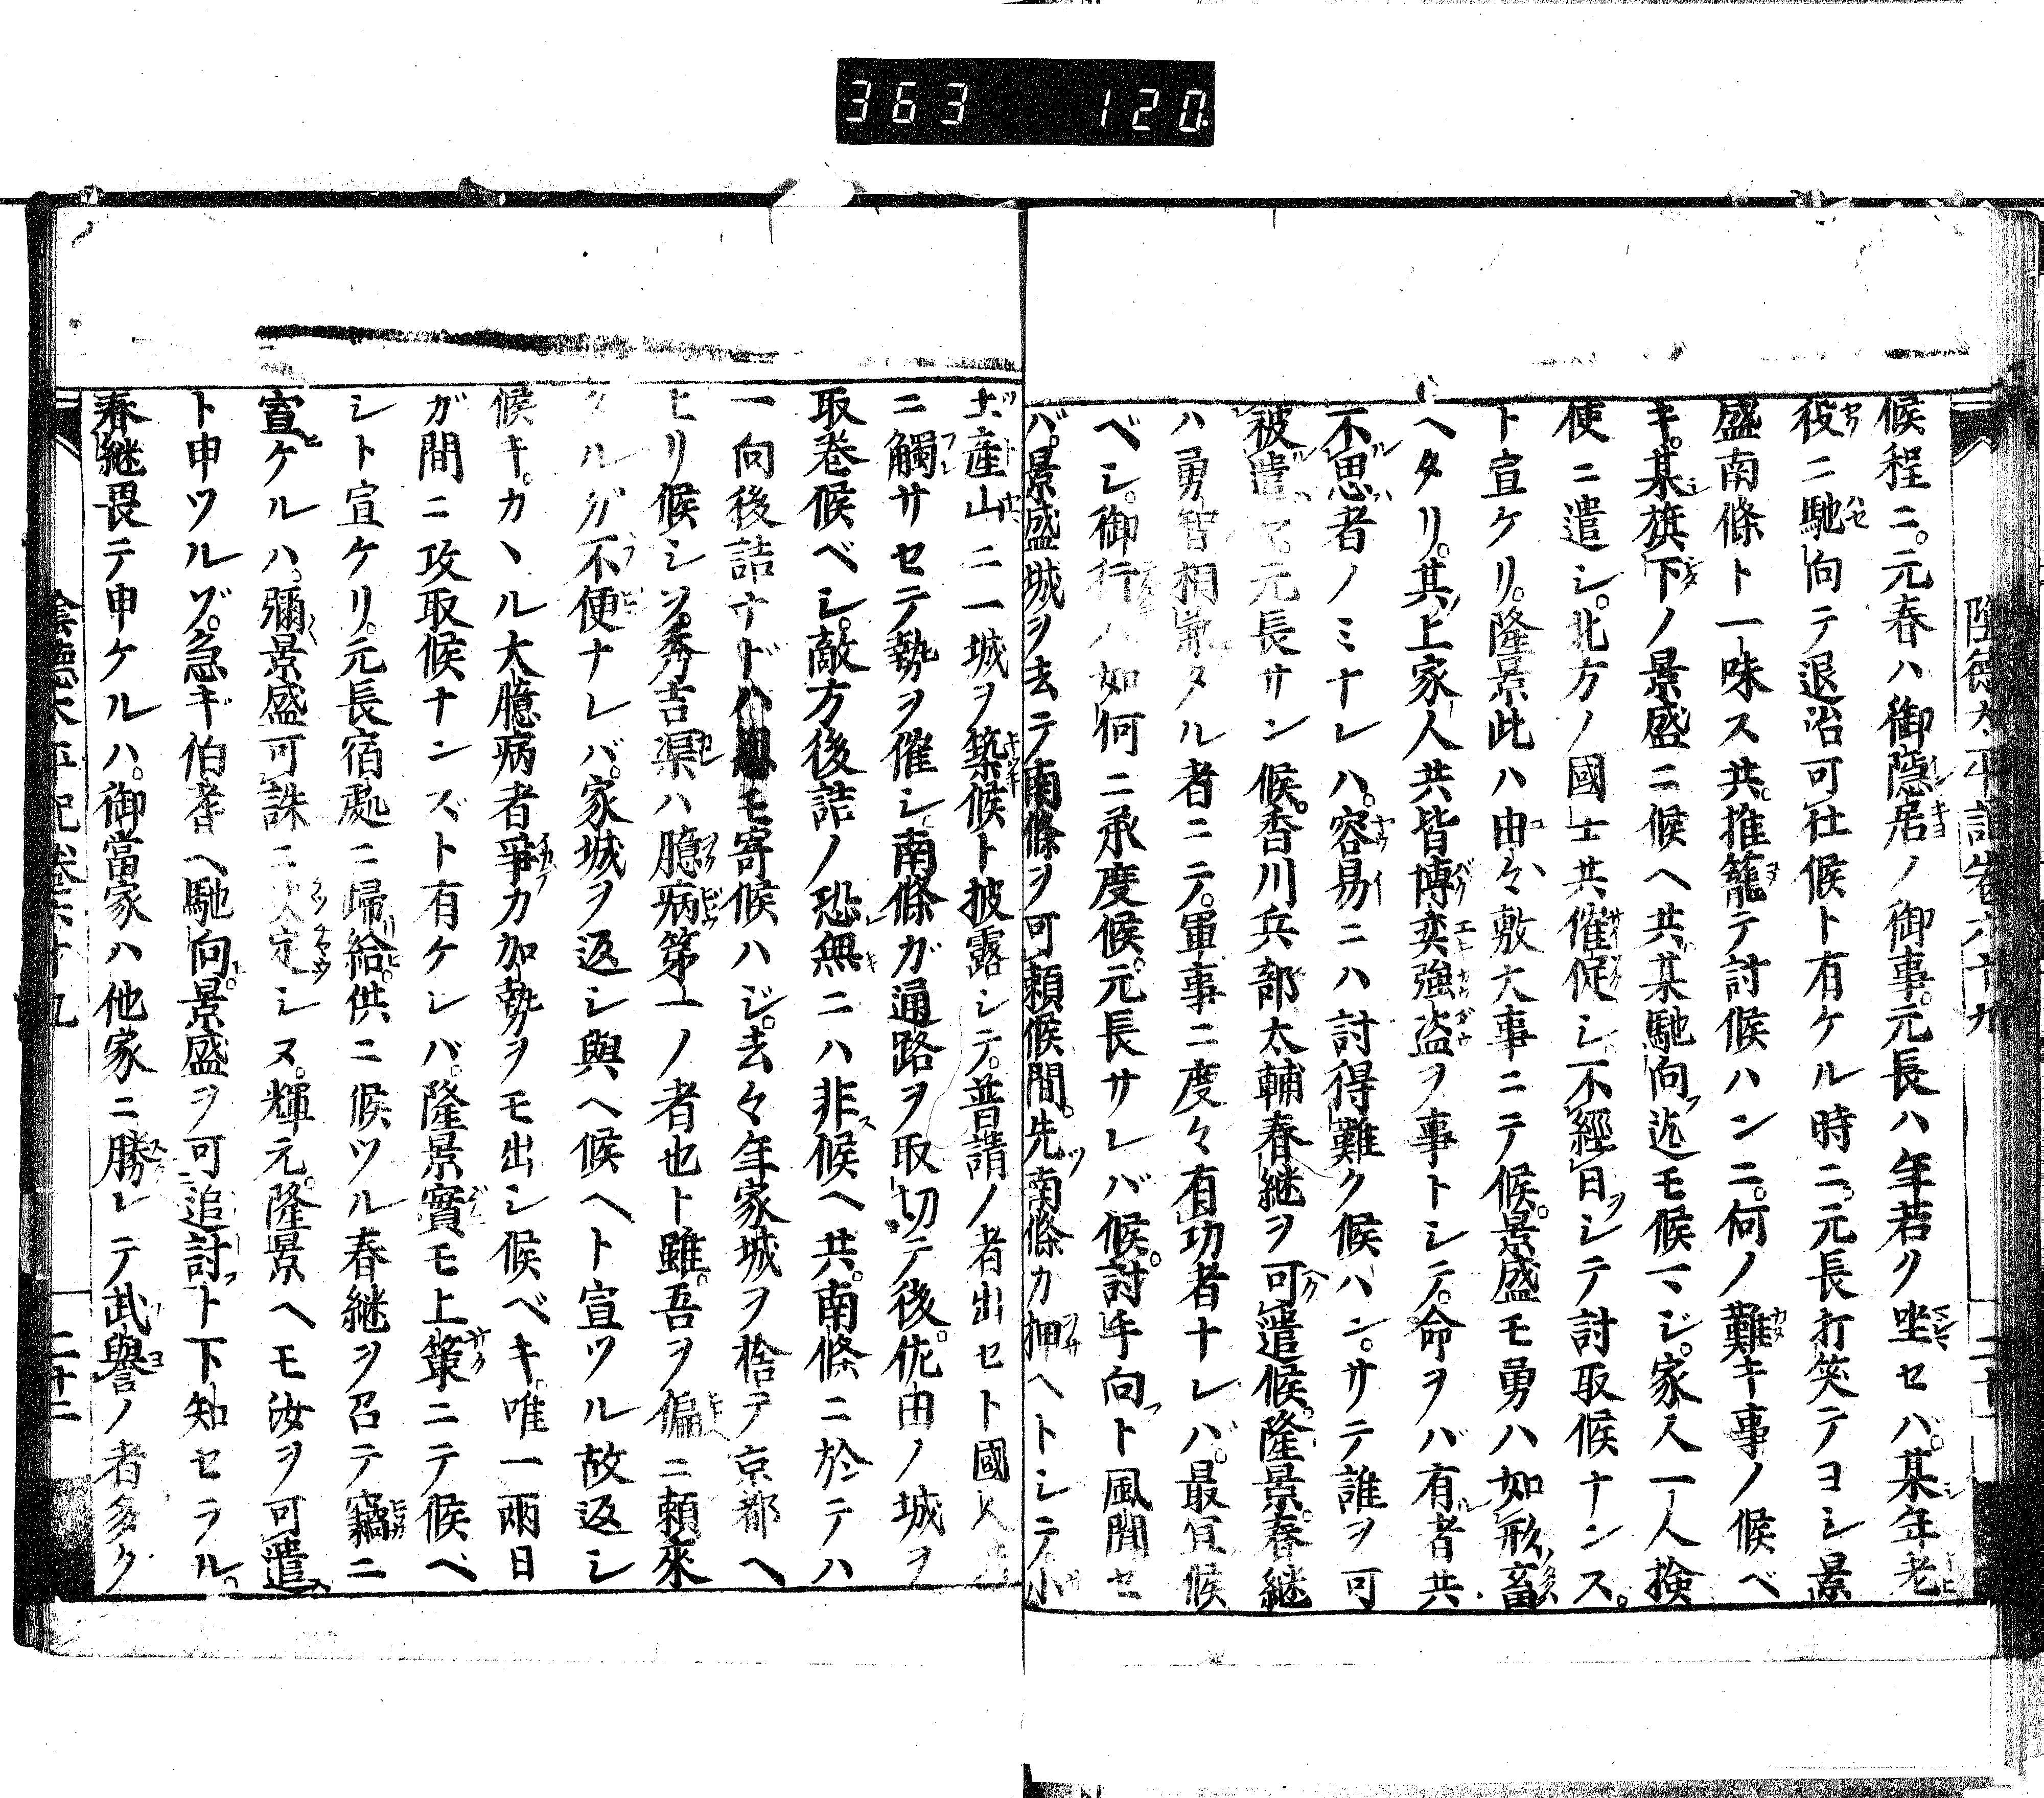 363 120
陰德太平記卷六十九
候程ニ。元春ハ御隱居ノ御事。元長ハ年若ク坐セバ。某年老
役ニ馳向テ退治可仕候ト有ケル時ニ。元長打笑テヨシ景
盛南條ト一味ス共。推籠テ討候ハンニ。何ノ難キ事ノ候ベ
キ。某旗下ノ景盛ニ候ヘ共。某馳向迄モ候マジ。家人一人檢
使ニ遣シ。北方ノ國士共催促シ。不經日シテ討取候ナンス。
ト宣ケリ。隆景此ハ由々敷大事ニテ候。景盛モ勇ハ如形畜
ヘタリ。其上家人共皆博奕強盜ヲ事トシテ。命ヲハ有者共
不思者ノミナレハ。容易ニハ討得難ク候ハン。サテ誰ヲ可
被遣セ。元長サン候。香川兵部太輔春継ヲ可遣候。隆景。春継
ハ勇智相兼タル者ニテ。軍事ニ度々有功者ナレバ。最宜候
ベシ。御行ハ如何ニ承度候。元長サレバ候。討手向ト風聞セ
バ。景盛城ヲ去テ南條ヲ可頼候間。先南條カ押ヘトシテ小
土産山ニ一城ヲ築候ト披露シテ。普請ノ者出セト國人
ニ觸サセテ勢ヲ催シ。南條ガ通路ヲ取切テ後。佗由ノ城ヲ
取卷候ベシ。敵方後詰ノ恐無ニハ非候ヘ共。南條ニ於テハ
一向後詰ナドハ思モ寄候ハジ。去々年家城ヲ捨テ京都ヘ
ヒリ候シヲ。秀吉渠ハ臆病第一ノ者也ト雖。吾ヲ偏ニ頼來
タルガ不便ナレバ。家城ヲ返シ與ヘ候ヘト宣ツル故返シ
候キ。カヽル大臆病者爭カ加勢ヲモ出シ候ベキ。唯一兩日
ガ間ニ攻取候ナンズト有ケレバ。隆景實モ上策ニテ候ベ
シト宣ケリ。元長宿處ニ歸給。供ニ候ツル春継ヲ召テ竊ニ
宣ケルハ。彌景盛可誅ニ決定シヌ。輝元。隆景ヘモ汝ヲ可遣
ト申ツルゾ。急ギ伯耆ヘ馳向。景盛ヲ可追討ト下知セラル。
春継畏テ申ケルハ。御當家ハ他家ニ勝レテ武譽ノ者多ク
陰德太平記卷六十九
二十二